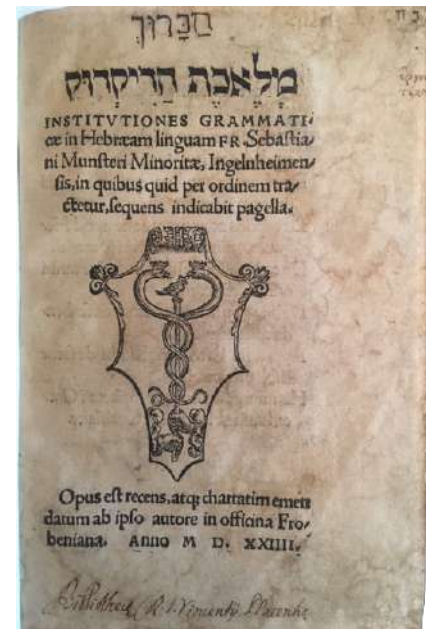 מְלֶאכֶת הַדִּיקְדּוּק
INSTITVTIONES GRAMMATI⸗
cæ in Hebræam linguam FR. Sebastia⸗
ni Munsteri Minoritæ, Ingelnheimen⸗
sis, in quibus quid per ordinem tra⸗
ctetur, sequens indicabit pagella.
Opus est recens, atq; chartatim emen
datum ab ipso autore in officina Fro⸗
beniana. Anno M D. XXIIII.
Biblioth